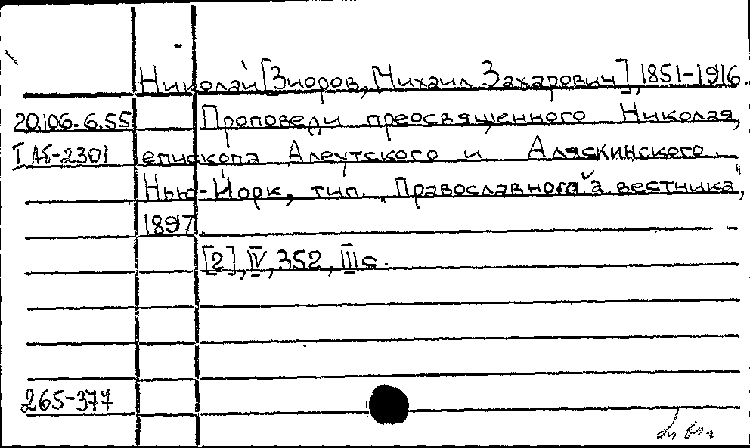 Николай [Зиоров, Михаил Захарович], 1851-1916.
20.106.6.55 Проповеди преосвященного Николая,
епископа Алеутского и Аляскинского.
Нью-Йорк, тип. "Православного а. вестника",
1897.
[2], IV, 352, III с.
265-377